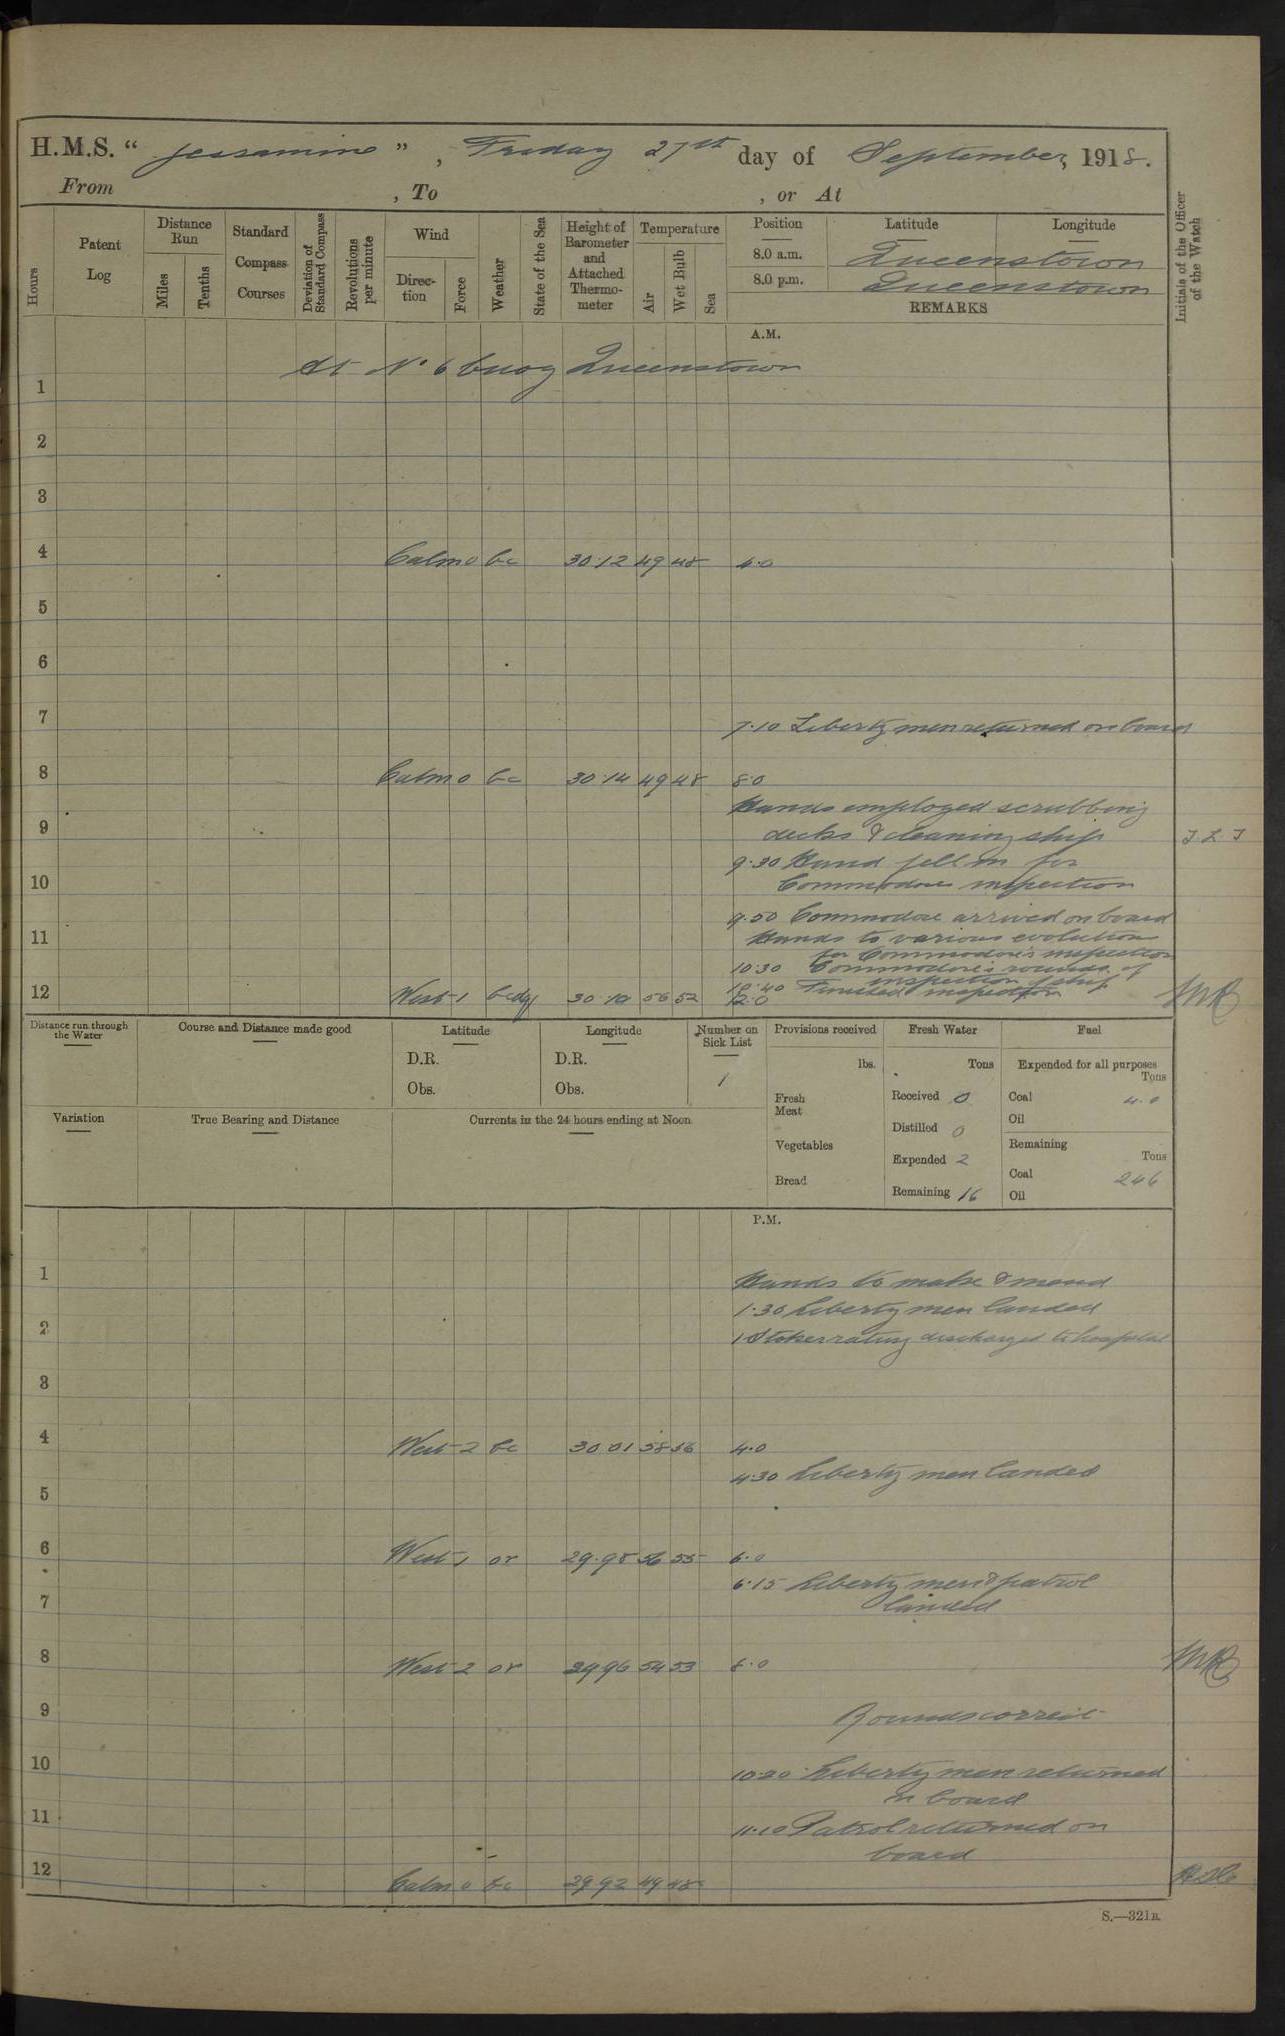 H.M.S. “ Jessamine ” , Friday 27th day of September, 1918.
From , To , or At
Hours
Patent Log
Distance Run
Miles
Tenths
Standard Compass Courses
Deviation of Standard Compass
Revolutions per minute
Wind
Direc-tion
Force
Weather
State of the Sea
Height of Barometer and Attached Thermo-meter
Temperature
Air
Wet Bulb
Sea
Position Latitude Longitude
8.0 a.m. Queenstown
8.0 p.m. Queenstown
REMARKS
Initials of the Officer of the Watch
A.M.
At No 6 buoy Queenstown
1
2
3
4 Calm 0 bc 30.12 49 48 4.0
5
6
7 7.10 Liberty men returned on board
8 Calm 0 bc 30.14 49 48 8.0
Hands employed scrubbing
9 decks & cleaning ship
9.30 Hand fell in for
10 Commodores inspection
9.50 Commodore arrived on board
11 Hands to various evolutions
for Commodore's inspection
10.30 Commodore's rounds of
inspection of ship
Finished inspection
12 West 1 30.10 56 52 12.0
Distance run through the Water
Course and Distance made good
Latitude
D.R.
Obs.
Longitude
D.R.
Obs.
Number on Sick List
1
Provisions received
lbs.
Fresh Meat
Vegetables
Bread
Fresh Water
Tons
Received 0
Distilled 0
Expended 2
Remaining 16
Fuel
Expended for all purposes
Tons
Coal 4.0
Oil
Remaining
Tons
Coal 246
Oil
Variation
True Bearing and Distance
Currents in the 24 hours ending at Noon
P.M.
1 Hands to make & mend
1.30 Liberty men landed
2 1 Stoker rating discharged to hospital
3
4 West 2 bc 30 01 58 56 4.0
4.30 Liberty men landed
5
6 West 1 or 29.98 56 55 6.0
6.15 Liberty men & patrol
7 landed
8 West 2 or 29 96 54 53 8.0
9 Rounds correct
10 10.20 Liberty men returned
on board
11 11.10 Patrol returned on
board
12 Calm 0 bc 29 92 49 48
S.—321B.